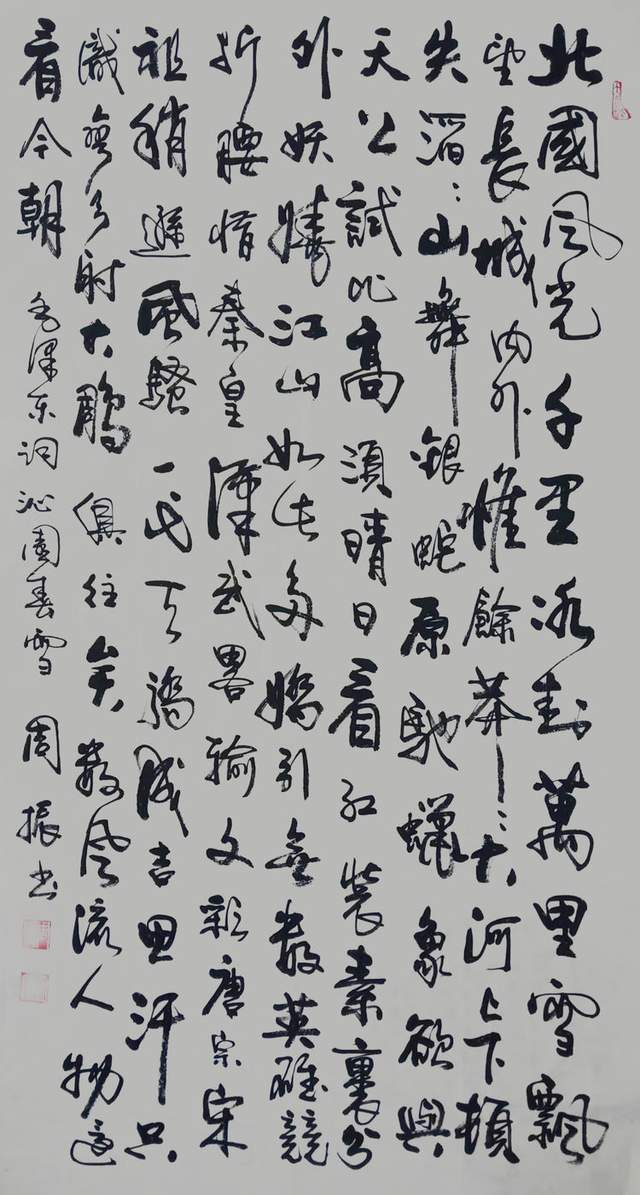 北國风光千里冰封萬里雪飄
望長城内外惟餘莽々大河上下頓
失滔々山舞銀蛇原馳蠟象欲與
天公試比高須晴日看红裝素裹分
外妖嬈江山如此多嬌引無數英雄競
折腰惜秦皇漢武畧輸文彩唐宗宋
祖稍遜風騷一代天驕成吉思汗只
識彎弓射大鵰俱往矣數风流人物还
看今朝 毛澤东詞沁園春雪 周振书